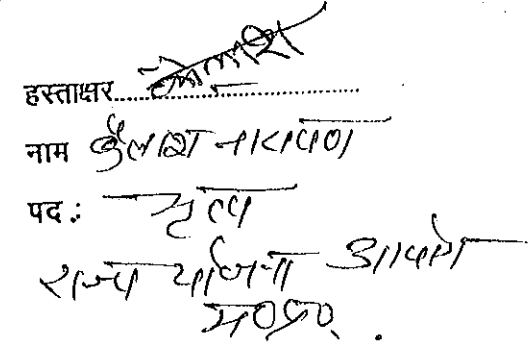 हस्ताक्षर.......कैलाश.......
नाम कैलाश नारायण
पद : भृत्य
राज्य योजना आयोग
म०प्र०.